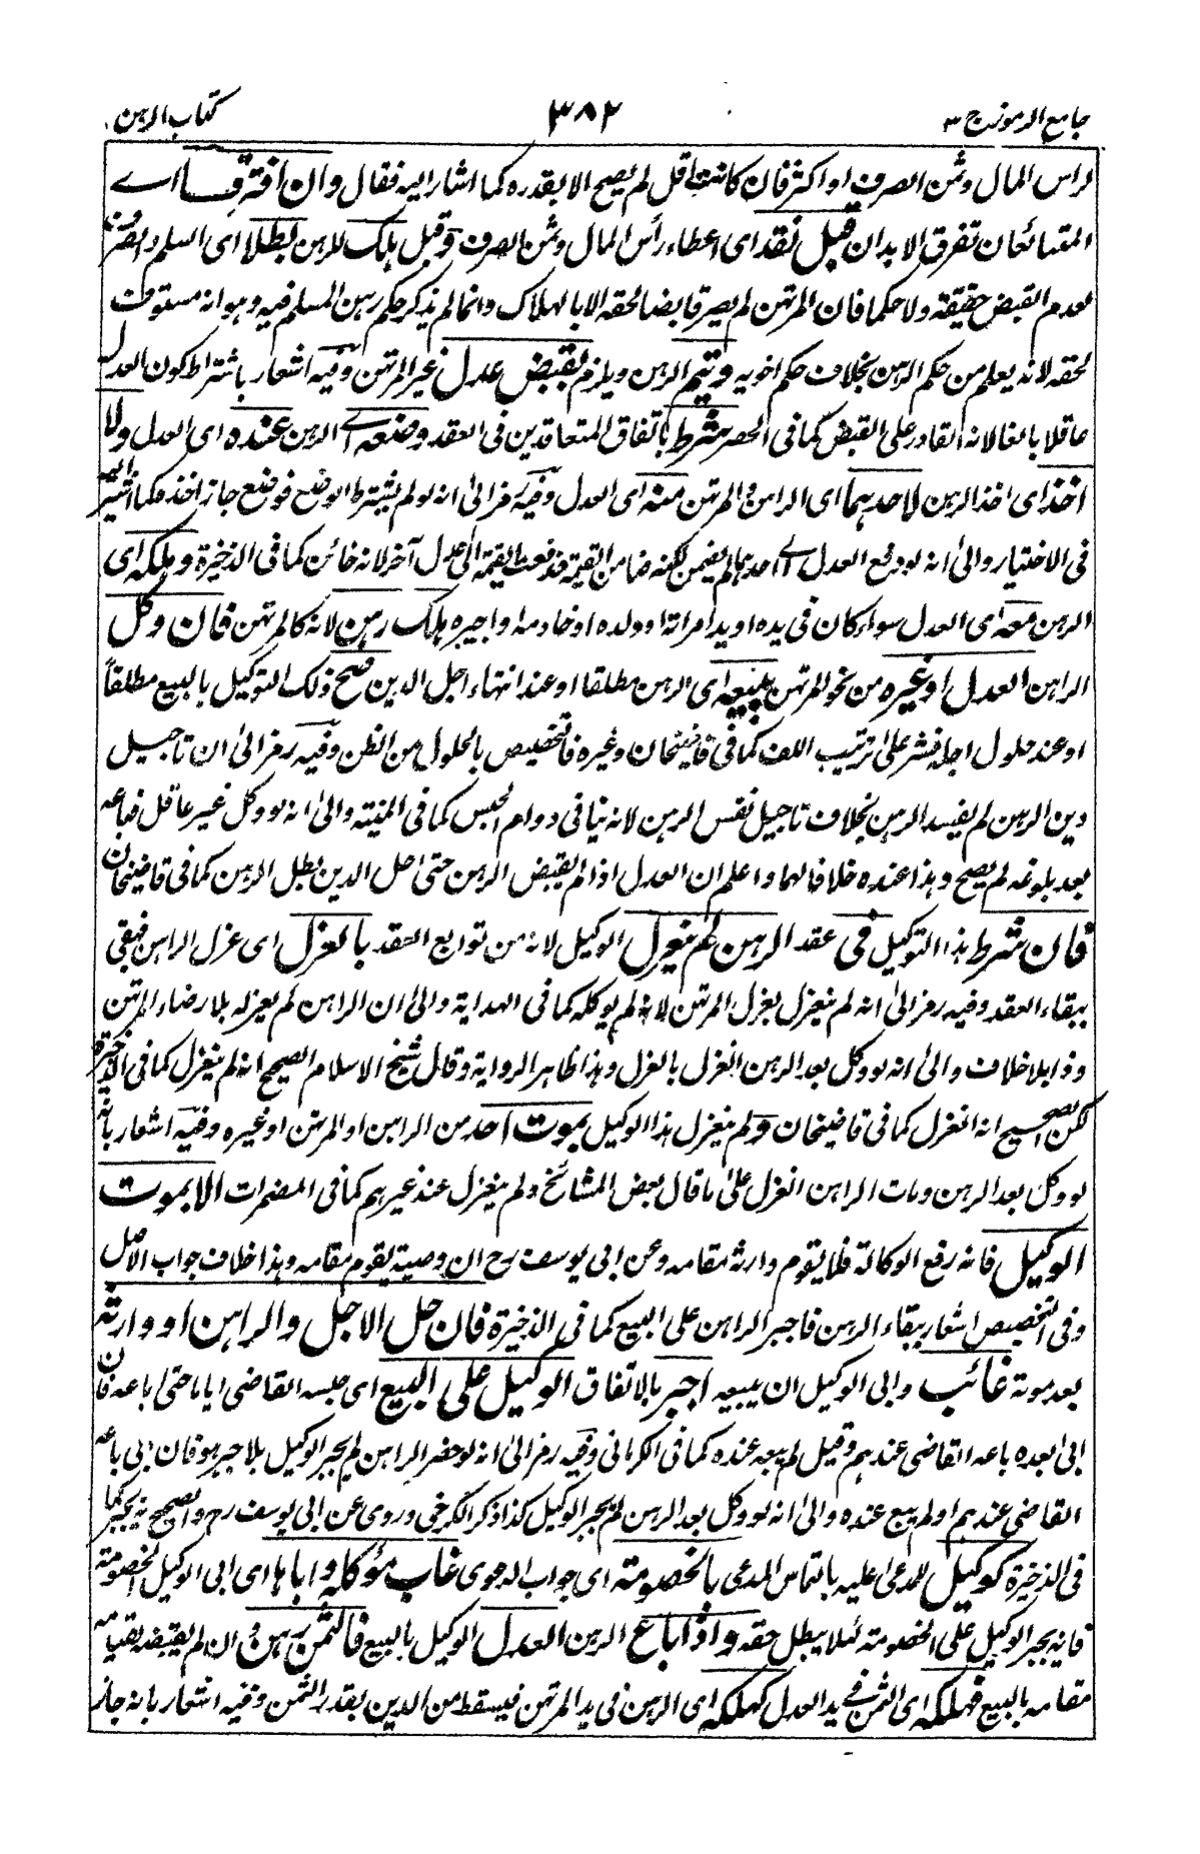 جامع الرموز ج ٣ ٣٨٢ كتاب الرهن
لراس المال وثمن الصرف او اكثر فان كانت اقل لم يصح الا بقدره كما اشار اليه فقال وان افترقا اے
المتبائعان تفرق الابدان قبل نقد اى اعطاء رأس المال وثمن الصرف وقبل هلك للرهن بطلا اى السلم والصرف
لعدم القبض حقيقة ولا حكما فان المرتهن لم يصر قابضا لحقه الا بالهلاك وانما لم يذكر حكم رهن المسلم فيه وهو انه مستوف
لحقه لانه يعلم من حكم الرهن بخلاف حكم اخويه وتيم الرهن ويلزم بقبض عدل غير المرتهن وفيه اشعار باشتراط كون العدل
عاقلا بالغا لانه القادر على القبض كما فى الحصر شرط باتفاق المتعاقدين فى العقد وضعه اے الرهن عنده اى العدل ولا
اخذ اى اخذ الرهن لاحدهما اى الراهن والمرتهن منه اى العدل وفيه رمز الى انه لو لم يشترط الوضع فوضع جاز اخذه كما اشير اليه
فى الاختيار والى انه لو دفع العدل اے احدهما لم يضمن لكنه ضامن القيمة فدفعت القيمة الى عدل آخر لانه خائن كما فى الذخيرة وهلكه اى
الرهن معه اى العدل سواء كان فى يده او يد امراته او ولده او خادمه او اجيره هلك رهن لانه كالمرتهن فان وكل
الراهن العدل او غيره من نحو المرتهن ببيعه اى الرهن مطلقا او عند انتهاء اجل الدين صح ذلك التوكيل بالبيع مطلقاً
او عند حلول اجله فنشر على ترتيب اللف كما فى قاضيخان وغيره فالتخصيص بالحلول من الظن وفيه رمز الى ان تاجيل
دين الرهن لم يفسد الرهن بخلاف تاجيل نفس الرهن لانه ينافى دوام الحبس كما فى المنية والى انه لو وكل غير عاقل فباعه
بعد بلوغه لم يصح وهذا عنده خلافا لهما واعلم ان العدل اذا لم يقبض الرهن حتى احل الدين بطل الرهن كما فى قاضيخان
فان شرط هذا التوكيل فى عقد الرهن لم ينعزل الوكيل لانه من توابع العقد بالعزل اى عزل الراهن فيبقى
ببقاء العقد وفيه رمز الى انه لم ينعزل بعزل المرتهن لانه لم يوكله كما فى الهداية والى ان الراهن لم يعزله بلا رضاء المرتهن
وذا بلا خلاف والى انه لو وكل بعد الرهن انعزل بالعزل وهذا ظاهر الرواية وقال شيخ الاسلام الصحيح انه لم ينعزل كما فى الذخيرة
لكن الصحيح انه انعزل كما فى قاضيخان ولم ينعزل هذا الوكيل بموت احد من الراهن او المرتهن او غيره وفيه اشعار بانه
لو وكل بعد الرهن ومات الراهن انعزل على ما قال بعض المشائخ ولم ينعزل عند غيرهم كما فى المضمرات الا بموت
الوكيل فانه رفع الوكالة فلا يقوم وارثه مقامه وعن ابى يوسف رح ان وصيه يقوم مقامه وهذا خلاف جواب الاصل
وفى التخصيص اشعار ببقاء الرهن فاجبر الراهن على البيع كما فى الذخيرة فان حل الاجل والراهن او وارثه
بعد موته غائب وابى الوكيل ان يبيعه اجبر بالاتفاق الوكيل على البيع اى حبسه القاضى اياما حتى اباعه فان
ابى بعده باعه القاضى عندهم وقيل لم يبعه عنده كما فى الكرمانى وفيه رمز الى انه لو حضر الراهن لم يجبر الوكيل بلا جبر هو فان ابى باعه
القاضى عندهم او لم يبع عنده والى انه لو وكل بعد الرهن لم يجبر الوكيل كذا ذكر الكرخى وروى عن ابى يوسف رح والصحيح انه يجبر كما
فى الذخيرة كوكيل للمدعى عليه بالتماس المدعى بالخصومة اى جواب الدعوى غاب موكله واباها اى ابى الوكيل الخصومة
فانه يجبر الوكيل على الخصومة لئلا يبطل حقه واذا باع الرهن العدل الوكيل بالبيع فالثمن رهن وان لم يقبضه لقيامه
مقامه بالبيع فهلكه اى الثمن فے يد العدل كهلكه اى الرهن فى يد المرتهن فيسقط من الدين بقدر الثمن وفيه اشعار بانه جاز